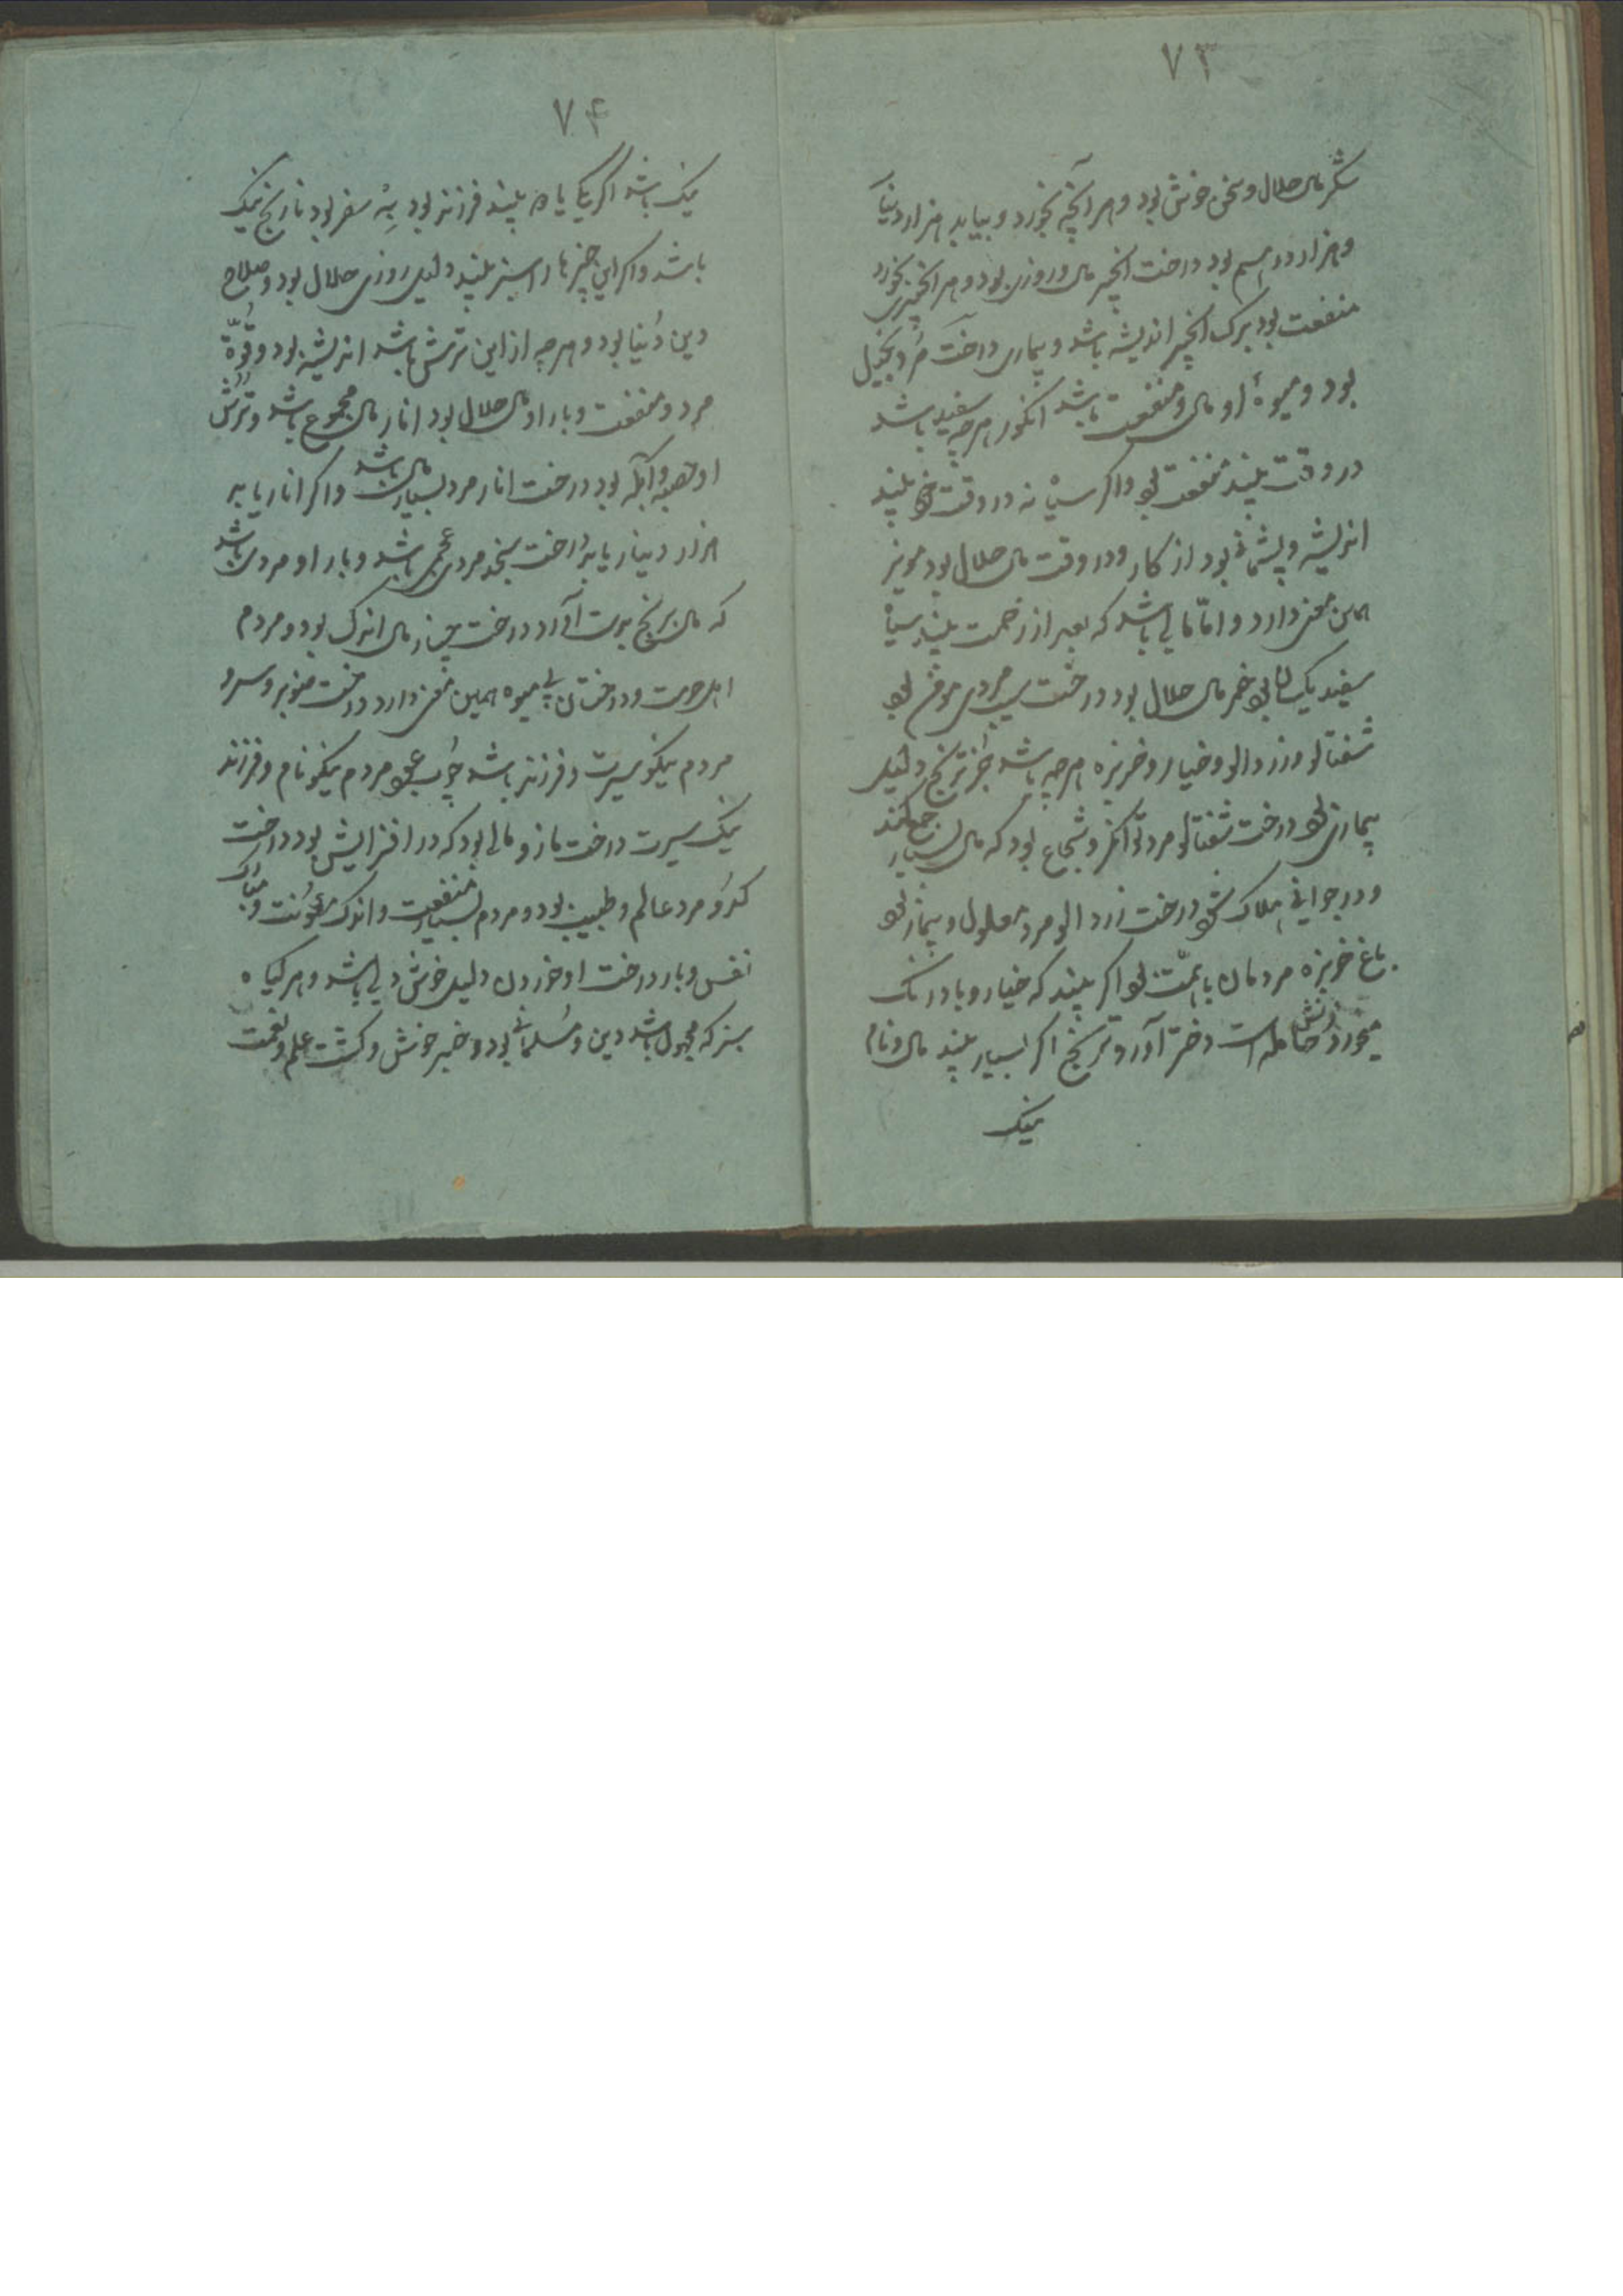 ۷۳
شکر مال حلال و سخن خوش بود و هر آنچه بخورد و بیابد هزار دینار
و هزار درهم بود درخت انجیر مال و روزی بود و هر انجیری بخورد
منفعت بود برک انجیر اندیشه باشد و بیماری درخت مرد بخیل
بود و میوهٔ او مال و منفعت باشد انکور هرچه سفید باشد
در وقت بیند منفعت بود و اکر سیاه نه در وقت خود بیند
اندیشه و پشیمانی بود از کار و در وقت مال حلال بود مویز
همین معنی دارد و اما مالی باشد که بعد از زحمت بیند سیاه
سفید یکسان بود خمر مال حلال بود درخت سیب مردی بود
شفتالو و زردالو و خیار و خربزه هرچه باشد جز ترنج دلیل
بیماری بود درخت شفتالو مرد توانکر و شجاع بود که مال بسیار جمع کند
و در جوانی هلاک شود درخت زردالو مرد معلول و بیمار بود
باغ خربزه مردمان با همت بود اکر بیند که خیار و بادرنک
میخورد زنش حامله است دختر آورد و ترنج اکر بسیار بیند مال و نام
نیک
۷۴
نیک باشد اکر یکی یا دو بیند فرزند بود به سفر بود نارنج نیک
باشد و اکر این چیزها را سبز بیند دلیل روزی حلال بود و صلاح
دین و دنیا بود و هرچه از این ترش باشد اندیشه بود و قوة
مرد و منفعت و بار او مال حلال بود انار مال مجموع باشد و ترش
او بود درخت انار مرد بسیار مال باشد و اکر انار یابد
هزار دینار یابد درخت سنجد مردی عجمی باشد و بار او مردی باشد
که مال برنج بدست آورد درخت چنار مال اندک بود و مردم
اهل حرمت و درختان بی میوه همین معنی دارد درخت صنوبر و سرو
مردم نیکو سیرت و فرزند باشد چوب عود مردم نیکو نام و فرزند
نیک سیرت درخت مازو مالی بود که در افزایش بود درخت
کدو مرد عالم و طبیب بود و مردم بسیار منفعت و اندک مؤنت و مبارک
نفس و بار درخت او خوردن دلیل خوش دلی باشد و هر کیاه
سبز که مجهول باشد دین و مسلمانی بود و خبر خوش و کشت علم و نعمت